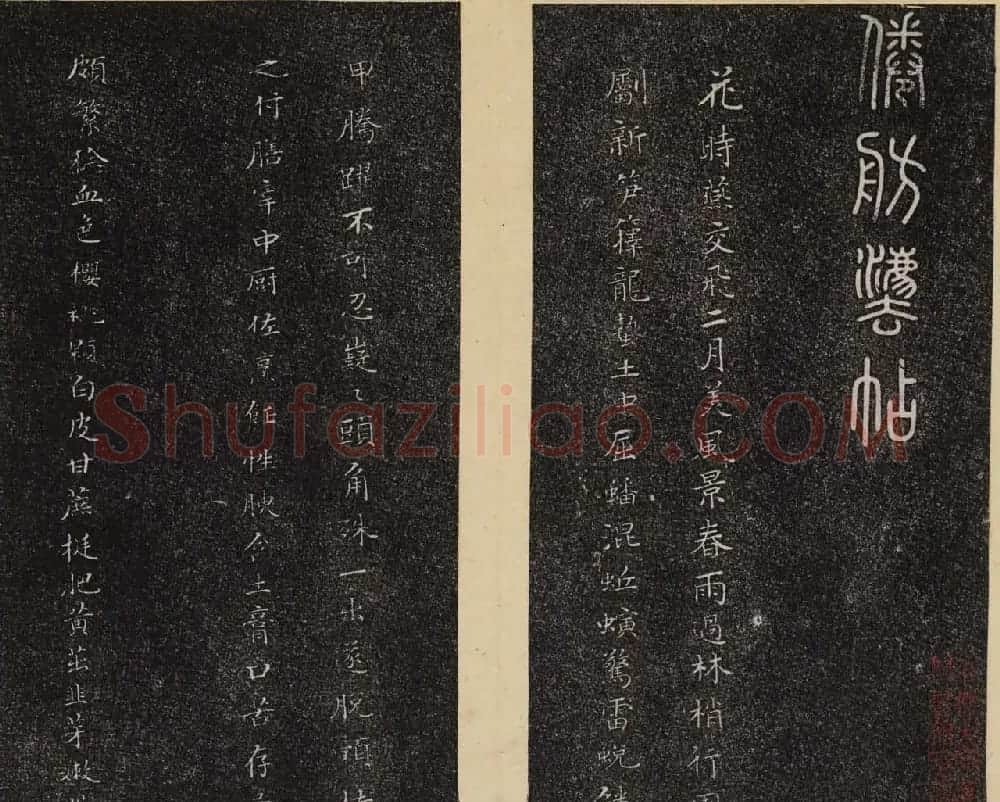 儋舫法帖
花時蝶交飛二月美風景春雨過林梢行
劚新笋籜龍蟄土中屈蟠混蚯蚓驚雷蛻
甲騰躍不可忍嶷々頭角殊一出遂脫穎
之付膳宰中厨佐烹飪性腴含土膏口若存
頗繁 血色櫻桃顆白皮甘蔗挺肥黃茁韭芽嫩
Shufaziliao.COM